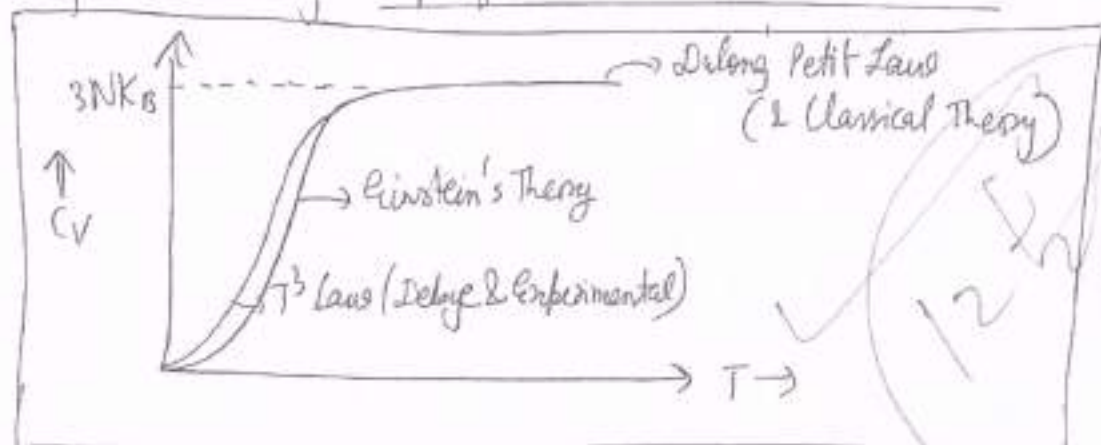 3NKB
Dulong Petit Law
(& Classical Theory)
CV
Einstein's Theory
T³ Law (Debye & Experimental)
T →